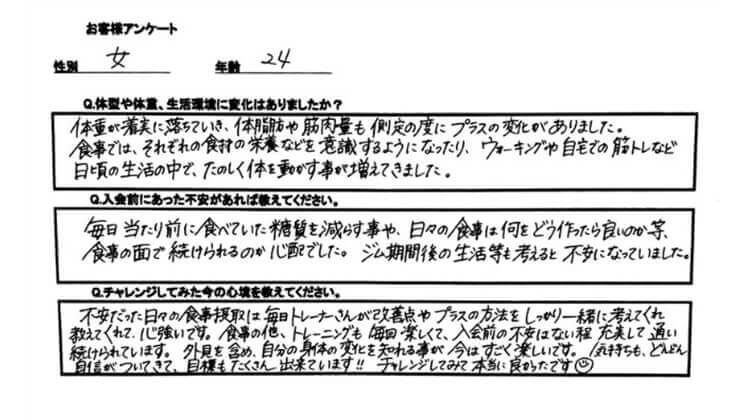 お客様アンケート
性別 女 年齢 24
Q.体型や体重、生活環境に変化はありましたか?
体重が着実に落ちていき、体脂肪や筋肉量も測定の度にプラスの変化がありました。
食事では、それぞれの食材の栄養などを意識するようになったり、ウォーキングや自宅での筋トレなど
日頃の生活の中で、たのしく体を動かす事が増えてきました。
Q.入会前にあった不安があれば教えてください。
毎日当たり前に食べていた糖質を減らす事や、日々の食事は何をどう作ったら良いのか等、
食事の面で続けられるのか心配でした。ジム期間後の生活等も考えると不安になっていました。
Q.チャレンジしてみた今の心境を教えてください。
不安だった日々の食事摂取は毎日トレーナーさんが改善点やプラスの方法をしっかり一緒に考えてくれ
教えてくれて、心強いです。食事の他、トレーニングも毎回楽しくて、入会前の不安はない程充実して通い
続けられています。外見を含め、自分の身体の変化を知れる事が今はすごく楽しいです。気持ちも、どんどん
自信がついてきて、目標もたくさん出来ています!! チャレンジしてみて本当に良かったです☺